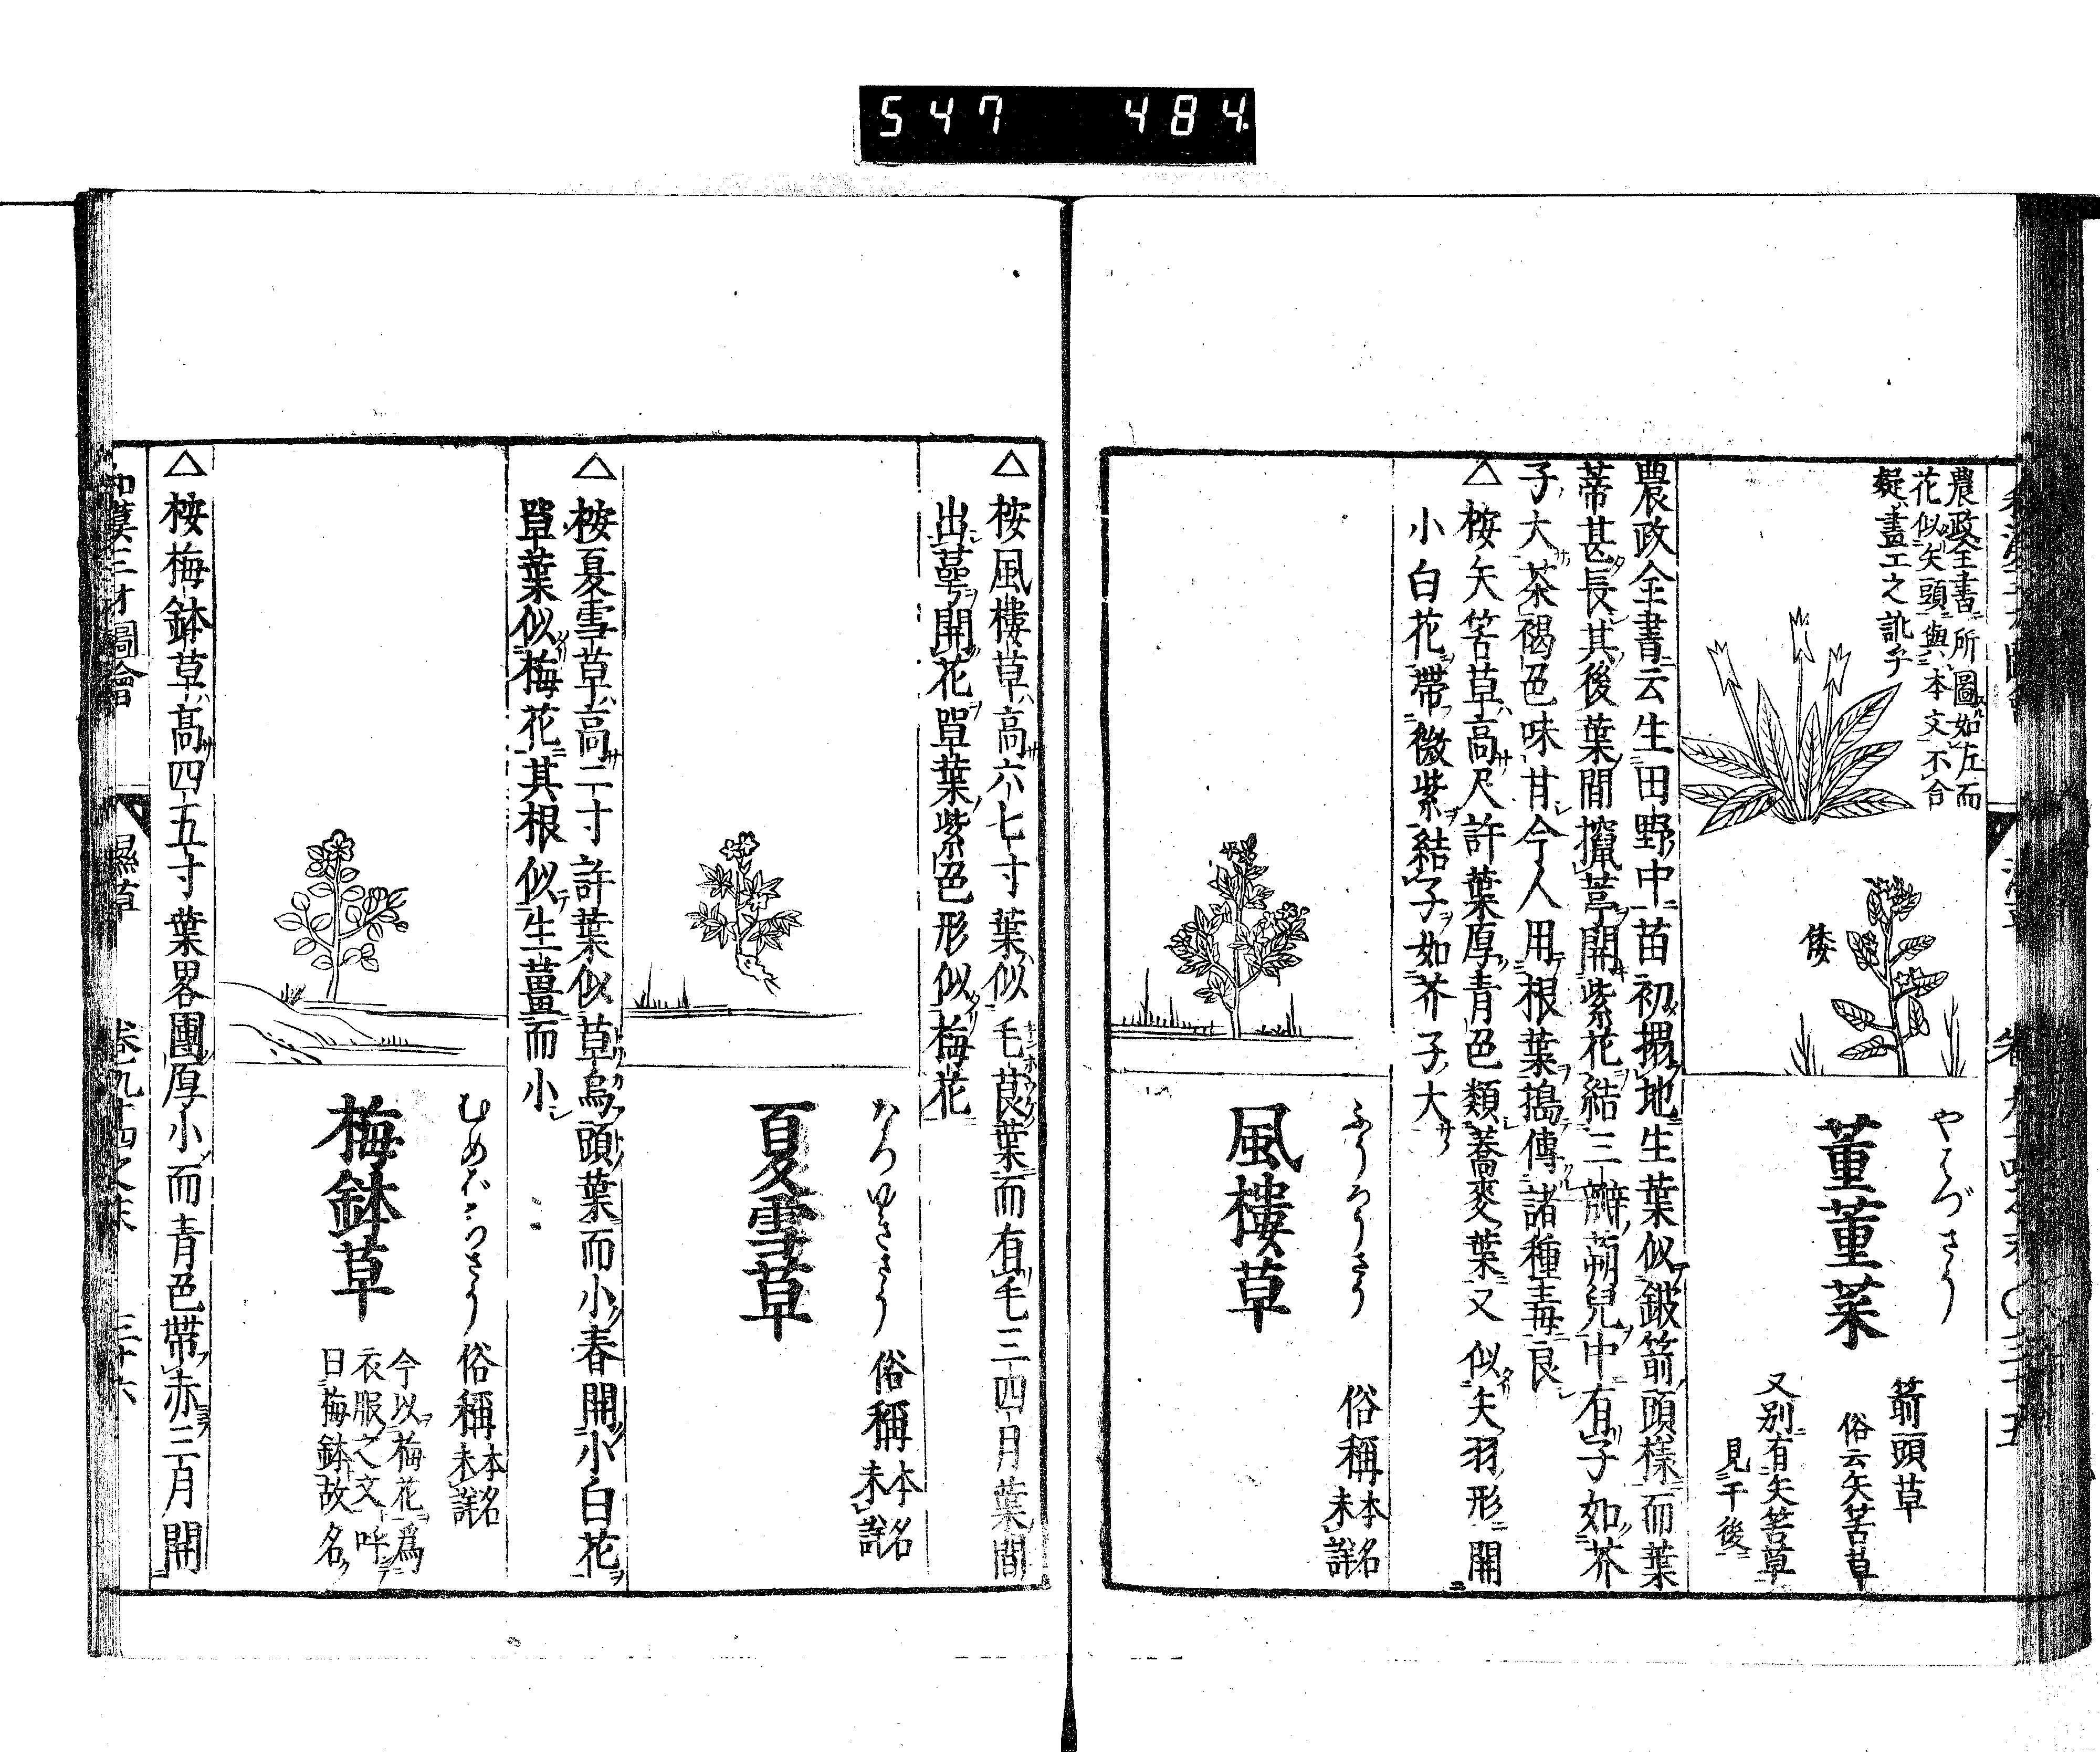 547 484
農政全書所圖如左而
花似矢頭與本文不合
疑畫工之訛乎
倭
やはづさう
菫菫菜
箭頭草
俗云矢筈草
又別有矢筈草
見于後
農政全書云生田野中苗初搨地生葉似鈹箭頭樣而葉
蒂甚長其後葉間攛葶開紫花結三瓣蒴兒中有子如芥
子大茶褐色味甘今人用根葉搗傅諸種毒良
△桉矢筈草高尺許葉厚青色類蕎麥葉又似矢羽形開
小白花帶微紫結子如芥子大
ふうろうさう
風樓草
俗稱
本名
未詳
△桉風樓草高六七寸葉似毛莨葉而有毛三四月葉間
出萼開花單葉紫色形似梅花
なつゆきさう
夏雪草
俗稱
本名
未詳
△桉夏雪草高二寸許葉似草烏頭葉而小春開小白花
單葉似梅花其根似生薑而小
むめばちさう
梅鉢草
俗稱
本名
未詳
今以梅花爲
衣服之文呼
曰梅鉢故名
△桉梅鉢草高四五寸葉畧團厚小而青色帶赤三月開
和漢三才圖會 濕草 卷九十四之末 三十六